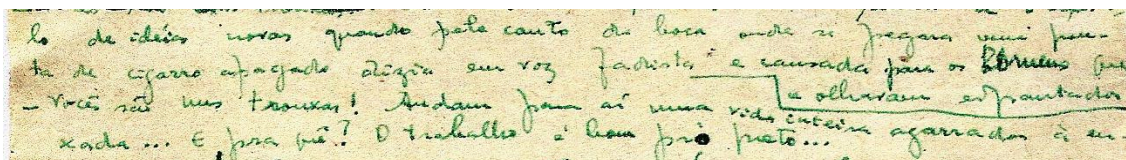 lo de idéias novas quando pelo canto da boca onde se pegara uma pon-
ta de cigarro apagado dizia em voz fadista e cansada para os homens que
o olhavam espantados
– vocês são uns trouxas! Andam para aí uma vida inteira agarrados à en-
xada... E pra quê? O trabalho é bom pró preto...